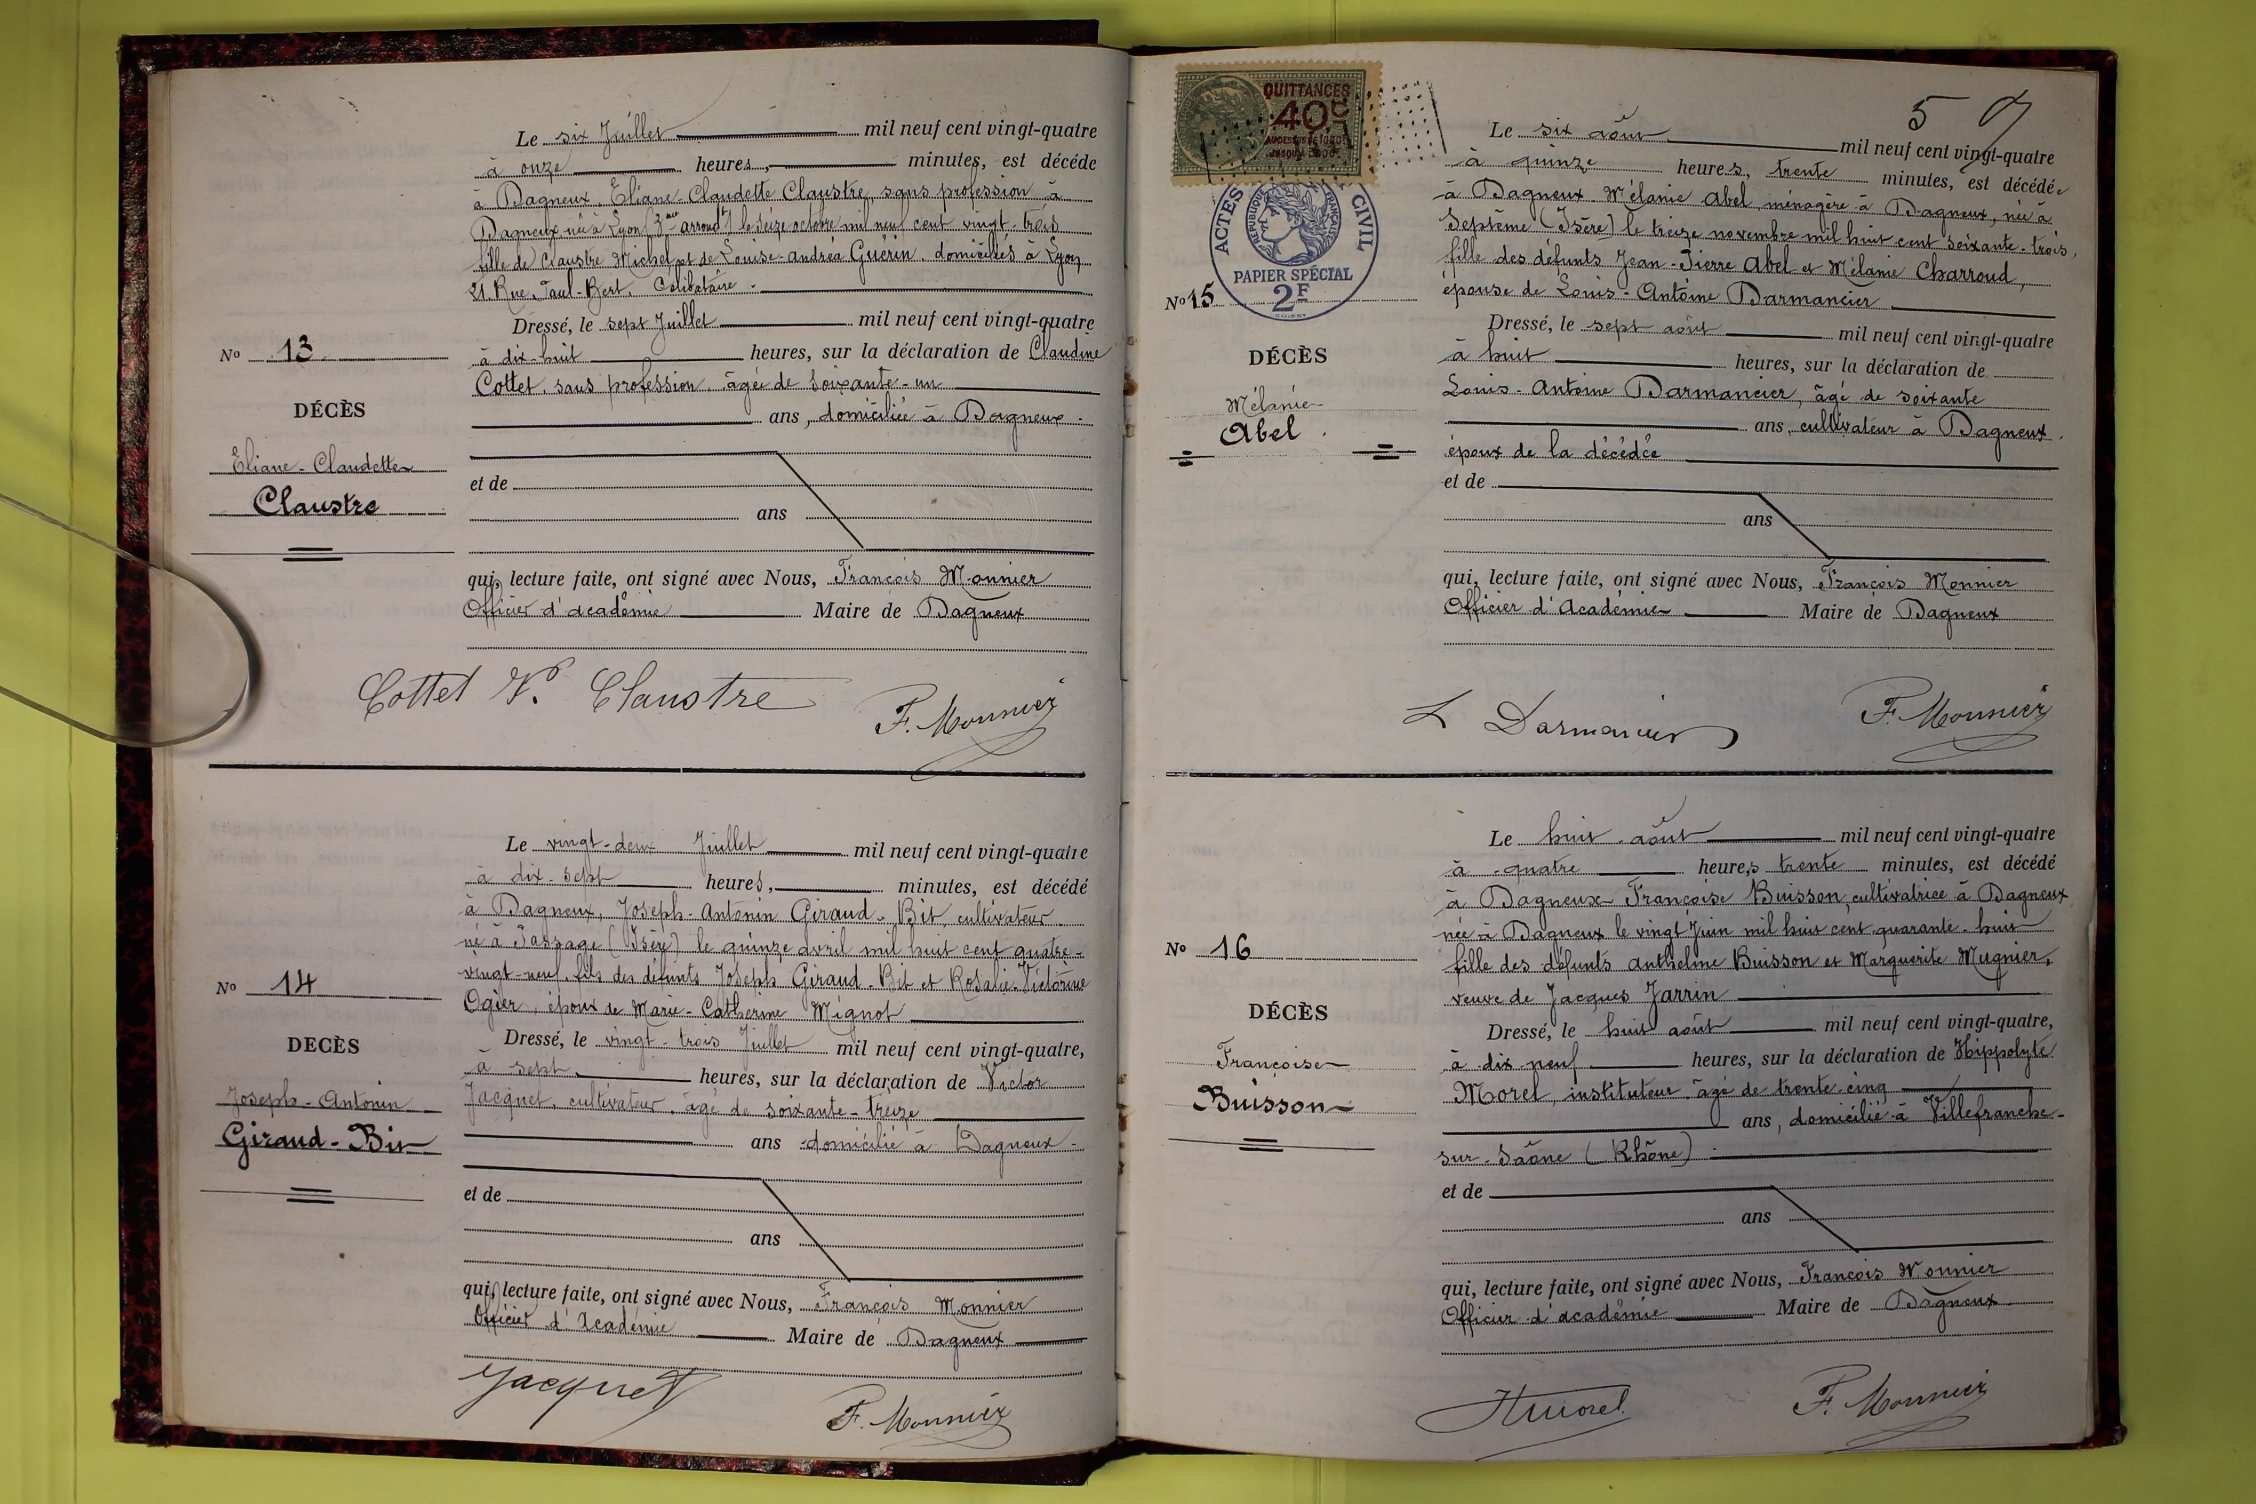 Le six Juillet mil neuf cent vingt-quatre
à onze heures, minutes, est décédé
à Dagneux, Eliane-Claudette Claustre, sans profession à
Dagneux née à Lyon (3me arrondt) le seize octobre mil neuf cent vingt-trois
fille de Claustre Michel et de Louise-Andréa Guérin, domiciliés à Lyon
21 Rue, Paul-Bert. Célibataire.
Dressé, le sept Juillet mil neuf cent vingt-quatre
à dix-huit heures, sur la déclaration de Claudine
Cottet, sans profession, âgée de soixante-un
ans, domiciliée à Dagneux.
et de
ans
qui, lecture faite, ont signé avec Nous, François Monnier
Officier d'académie Maire de Dagneux
Cottet Claustre
F. Monnier
No 13
DÉCÈS
Eliane-Claudette
Claustre
Le vingt-deux Juillet mil neuf cent vingt-quatre
à dix-sept heures, minutes, est décédé
à Dagneux, Joseph-Antonin Giraud-Bit, cultivateur
né à Passage (Isère) le quinze avril mil huit cent quatre-
vingt-neuf, fils des défunts Joseph Giraud-Bit et Rosalie-Victorine
Ogier, époux de Marie-Catherine Mignot
Dressé, le vingt-trois Juillet mil neuf cent vingt-quatre,
à sept heures, sur la déclaration de Victor
Jacquet, cultivateur, âgé de soixante-treize
ans domicilié à Dagneux-
et de
ans
qui, lecture faite, ont signé avec Nous, François Monnier
Officier d'Académie Maire de Dagneux
Jacquet
F. Monnier
No 14
DECÈS
Joseph-Antonin
Giraud-Bit
5
QUITTANCES
40c
ACTES CIVIL
RÉPUBLIQUE FRANÇAISE
PAPIER SPÉCIAL
2F
No 15
DÉCÈS
Mélanie
Abel
Le six août mil neuf cent vingt-quatre
à quinze heures, trente minutes, est décédée
à Dagneux Mélanie Abel, ménagère à Dagneux, née à
Septème (Isère) le treize novembre mil huit cent soixante-trois,
fille des défunts Jean-Pierre Abel et Mélanie Charroud,
épouse de Louis-Antoine Darmancier
Dressé, le sept août mil neuf cent vingt-quatre
à huit heures, sur la déclaration de
Louis-Antoine Darmancier, âgé de soixante
ans, cultivateur à Dagneux,
époux de la décédée
et de
ans
qui, lecture faite, ont signé avec Nous, François Monnier
Officier d'Académie Maire de Dagneux
L Darmancier
F. Monnier
Le huit août mil neuf cent vingt-quatre
à quatre heures trente minutes, est décédé
à Dagneux Françoise Buisson, cultivatrice à Dagneux
née à Dagneux le vingt Juin mil huit cent quarante-huit
fille des défunts Anthelme Buisson et Marguerite Mugnier,
veuve de Jacques Jarrin
Dressé, le huit août mil neuf cent vingt-quatre,
à dix neuf heures, sur la déclaration de Hippolyte
Morel, instituteur, âgé de trente-cinq
ans, domicilié à Villefranche-
sur-Saône (Rhône).
et de
ans
qui, lecture faite, ont signé avec Nous, François Monnier
Officier d'académie Maire de Dagneux
HMorel
F. Monnier
No 16
DÉCÈS
Françoise
Buisson